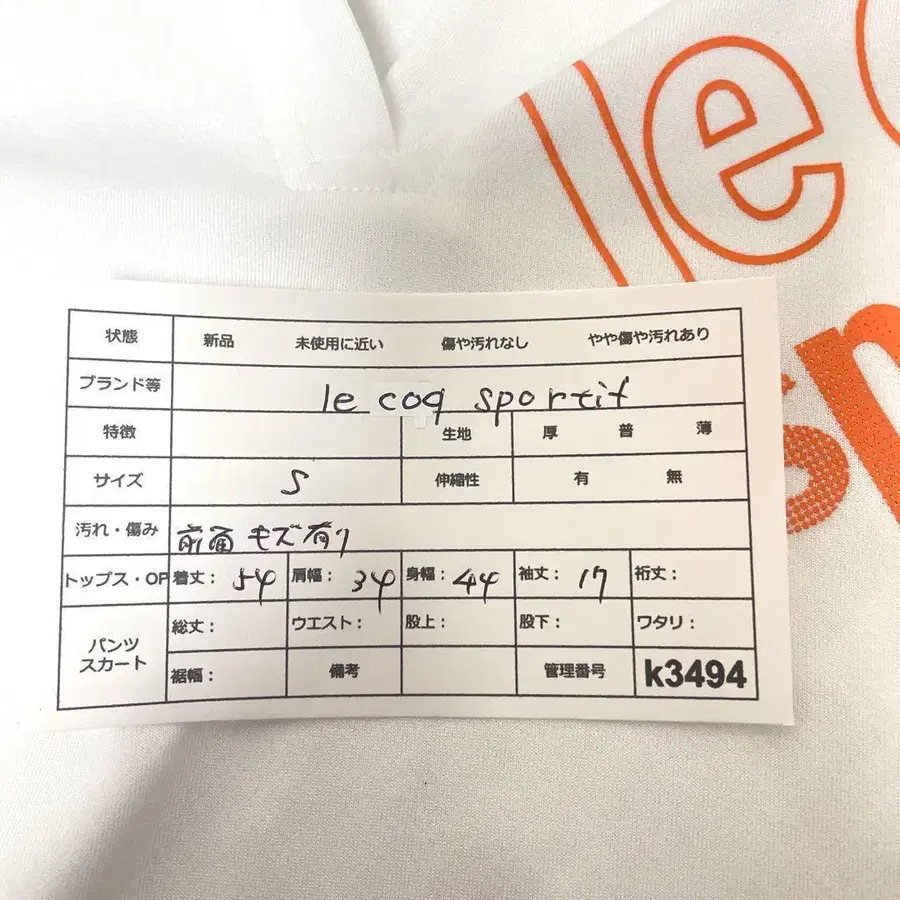 le c
sp
状態 新品 未使用に近い 傷や汚れなし やや傷や汚れあり
ブランド等 le coq sportif
特徴 生地 厚 普 薄
サイズ S 伸縮性 有 無
汚れ・傷み 前面 キズ有り
トップス・OP 着丈: 54 肩幅: 34 身幅: 44 袖丈: 17 裄丈:
パンツ スカート 総丈: ウエスト: 股上: 股下: ワタリ:
裾幅: 備考 管理番号 k3494